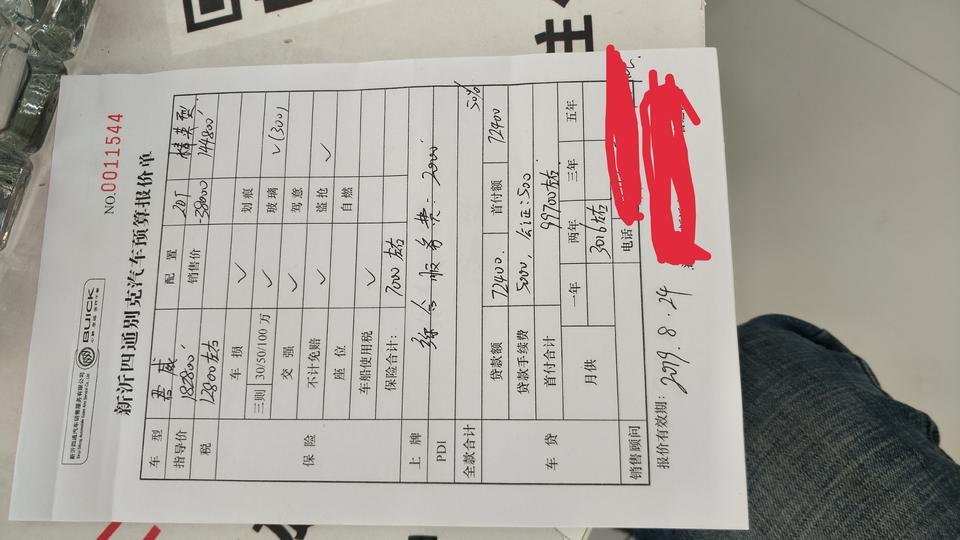 新沂四通汽车销售服务有限公司
BUICK
NO.0011544
新沂四通别克汽车预算报价单
车 型 君威 配 置 20T 精英型
指导价 182800 销售价 -38000 144800
税 12800左右
保 险
车 损 ✓ 划 痕
三则 30/50/100 万 ✓ 玻 璃 ✓(300)
交 强 ✓ 驾 意
不计免赔 ✓ 盗 抢 ✓
座 位 自 燃
车船使用税 ✓
保险合计: 7000左右
上 牌 综合服务费: 2000
PDI
全款合计 50%
车 贷
贷款额 72400. 首付额 72400
贷款手续费 5000,
首付合计 99700左右
月供 一年 两年 三年 五年
3016左右
销售顾问 电话
报价有效期: 2019.8.24